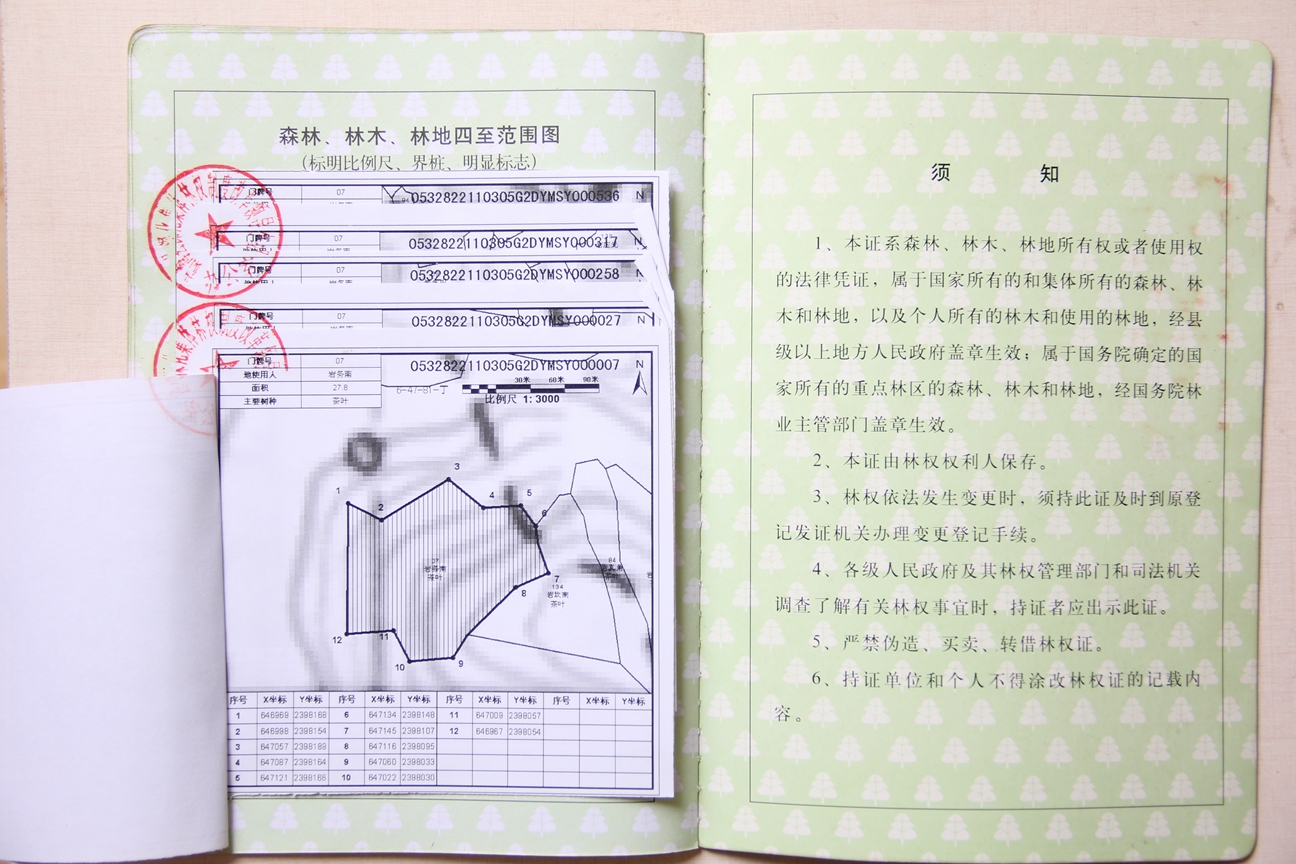 森林、林木、林地四至范围图
(标明比例尺、界桩、明显标志)
门牌号 07 0532822110305G2DYMSY000536 N
门牌号 07 0532822110305G2DYMSY000317 N
门牌号 07 0532822110305G2DYMSY000258 N
门牌号 07 0532822110305G2DYMSY000027 N
门牌号 07 0532822110305G2DYMSY000007 N
地使用人 岩务南
面积 27.8
主要树种 茶叶
6-47-81-丁
30米 60米 90米
比例尺 1:3000
1
2
3
4
5
6
7
8
9
10
11
12
岩务南
茶叶
134
岩坎南
茶叶
序号 X坐标 Y坐标 序号 X坐标 Y坐标 序号 X坐标 Y坐标 序号 X坐标 Y坐标
1 646969 2398168 6 647134 2398148 11 647009 2398057
2 646998 2398154 7 647145 2398107 12 646967 2398054
3 647057 2398189 8 647116 2398095
4 647087 2398164 9 647060 2398033
5 647121 2398166 10 647022 2398030
须 知
1、本证系森林、林木、林地所有权或者使用权
的法律凭证，属于国家所有的和集体所有的森林、林
木和林地，以及个人所有的林木和使用的林地，经县
级以上地方人民政府盖章生效；属于国务院确定的国
家所有的重点林区的森林、林木和林地，经国务院林
业主管部门盖章生效。
2、本证由林权权利人保存。
3、林权依法发生变更时，须持此证及时到原登
记发证机关办理变更登记手续。
4、各级人民政府及其林权管理部门和司法机关
调查了解有关林权事宜时，持证者应出示此证。
5、严禁伪造、买卖、转借林权证。
6、持证单位和个人不得涂改林权证的记载内
容。